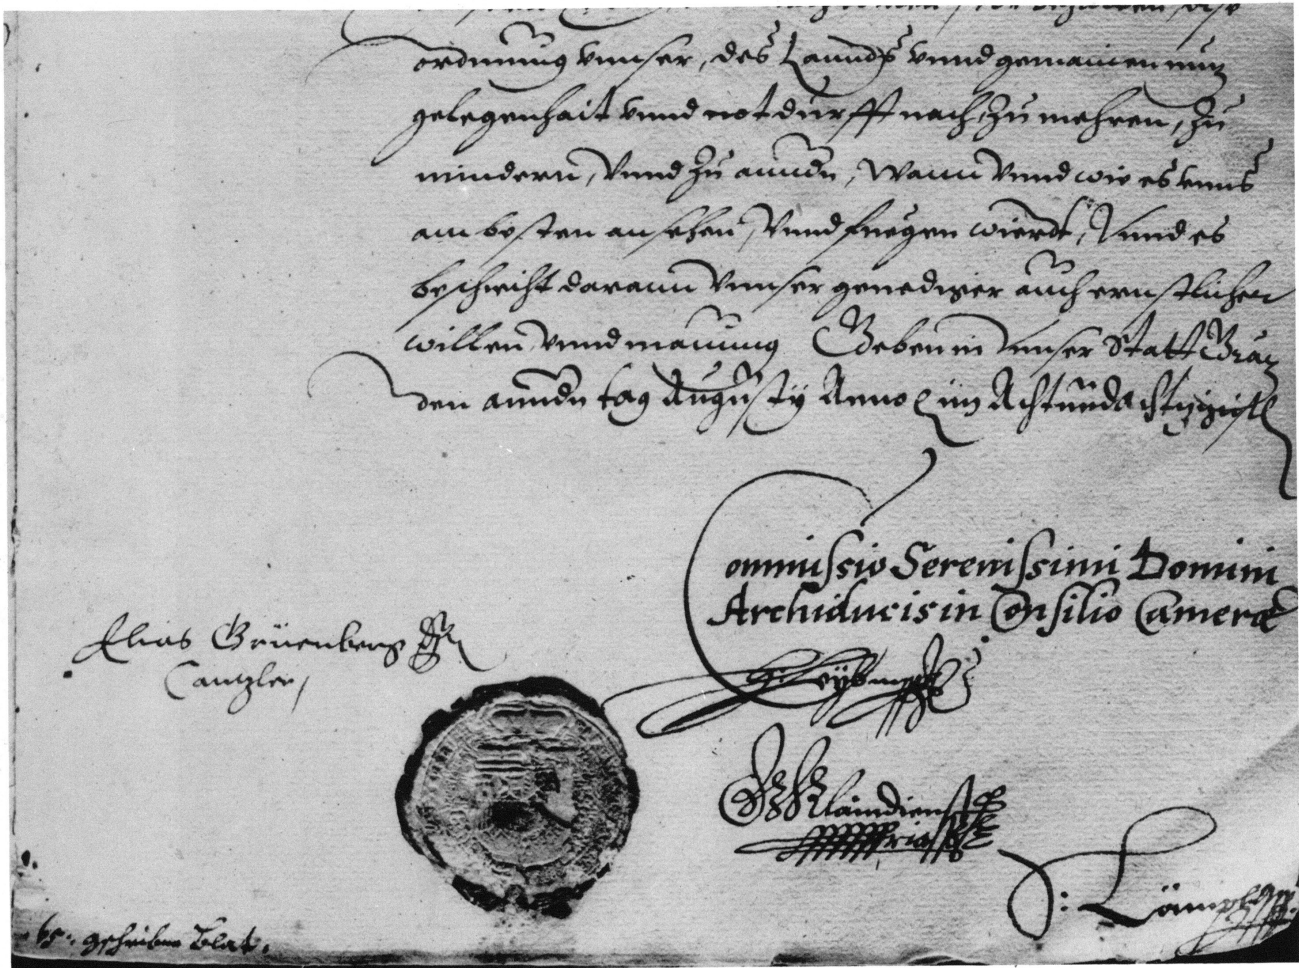 ordnnung vnnser, des Lannds vnnd gemainen nuz
gelegenhait vnnd notdurfft nach, Zu mehren, Zu
mindern, Vnnd Zu annden, Wann Vnnd wie es vnns
am besten ansehen, Vnnd fuegen wierdt, Vnnd es
beschicht darann Vnnser genediger auch ernstlicher
willen, vnnd mainung Geben in Vnnser Statt Gräz
den annden tag Augusty Anno im Achtundachtzigist
Commissio Serenissimi Domini
Archiducis in Consilio Cameræ
Elias Grüenberg
Canzler,
Klaindienst
D: Lämpl
65: gschriben Blat.